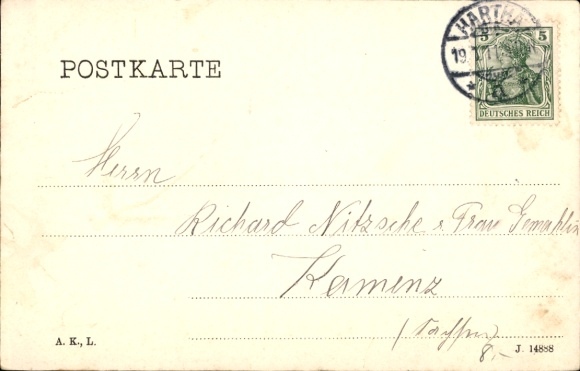 HARTHA
5 5
DEUTSCHES REICH
POSTKARTE
Herrn
Richard Nitzsche u Frau Gemahlin
Kamenz
(Sachsen)
8,-
A. K., L.
J. 14888